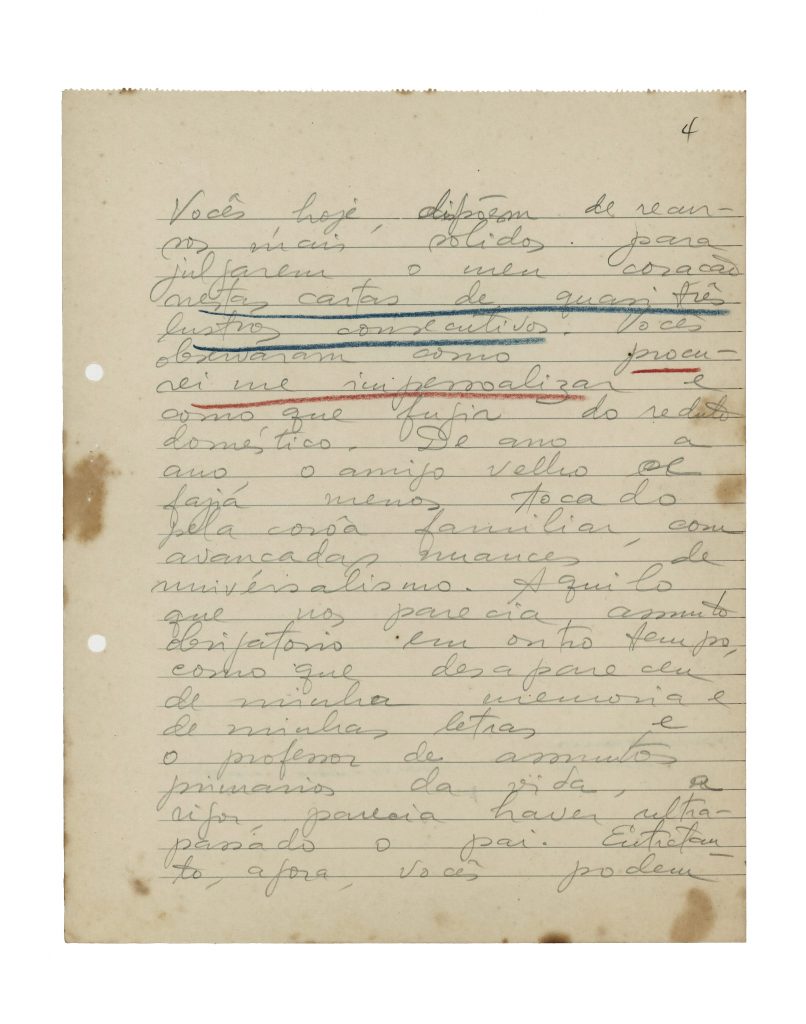 4
Vocês hoje, dispõem de recur-
sos mais solidos. para
julgarem o meu coração
nestas cartas de quasi três
lustros consecutivos. Vocês
observáram como procu-
rei me impessoalizar e
como que fugir do reduto
doméstico. De ano a
ano, o amigo velho se
fazia menos tocado
pela corôa familiar, com
avançadas nuances, de
univérsalismo. Aquilo
que nos parecia, assunto
obrigatorio em outro tempo,
como que desapareceu
de minha memoria e
de minhas letras e
o professor de assuntos
primarios da vida, a
rigor parecia haver ultra-
passádo o pai. Entretan-
to, agora, vocês podem